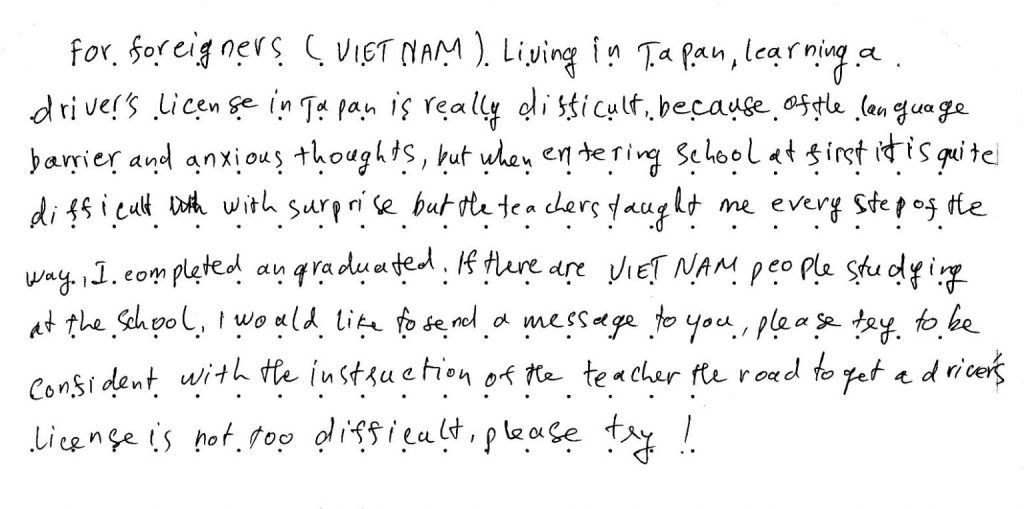 For foreigners (VIET NAM) Living in Japan, learning a
driver's license in Japan is really difficult, because of the language
barrier and anxious thoughts, but when entering school at first it is quite
difficult with surprise but the teachers taught me every step of the
way, I completed an graduated. If there are VIET NAM people studying
at the school, I would like to send a message to you, please try to be
confident with the instruction of the teacher the road to get a driver's
license is not too difficult, please try!